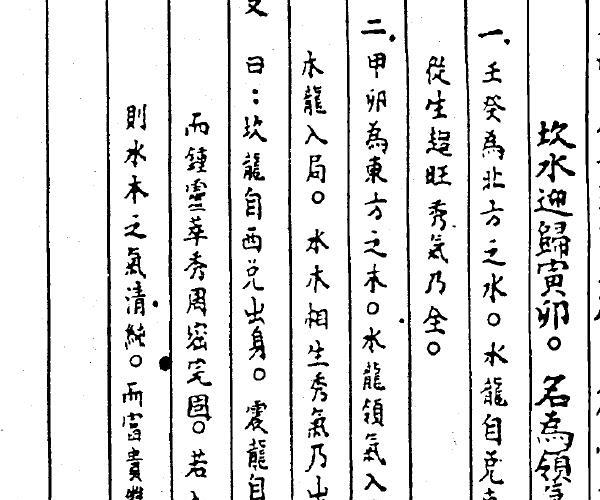 坎水迎歸寅卯。名為領
一、壬癸為北方之水。水龍自兌
從生趨旺秀氣乃全。
二、甲卯為東方之木。水龍領氣入
木龍入局。水木相生秀氣乃出
又曰：坎龍自西兌出身。震龍自
而鍾靈萃秀周密完固。若
則水木之氣清純。而富貴雙